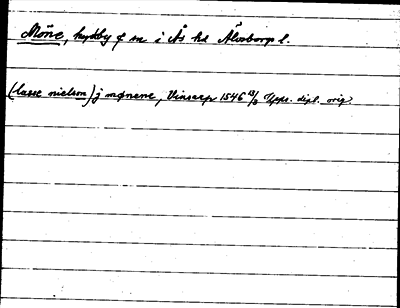 Möne, kyrkby o sn i Ås hd Älvsborgs l.
(lasse nielson) j mønene, Vinsarp 1546 13/3 Upps. dipl. orig.